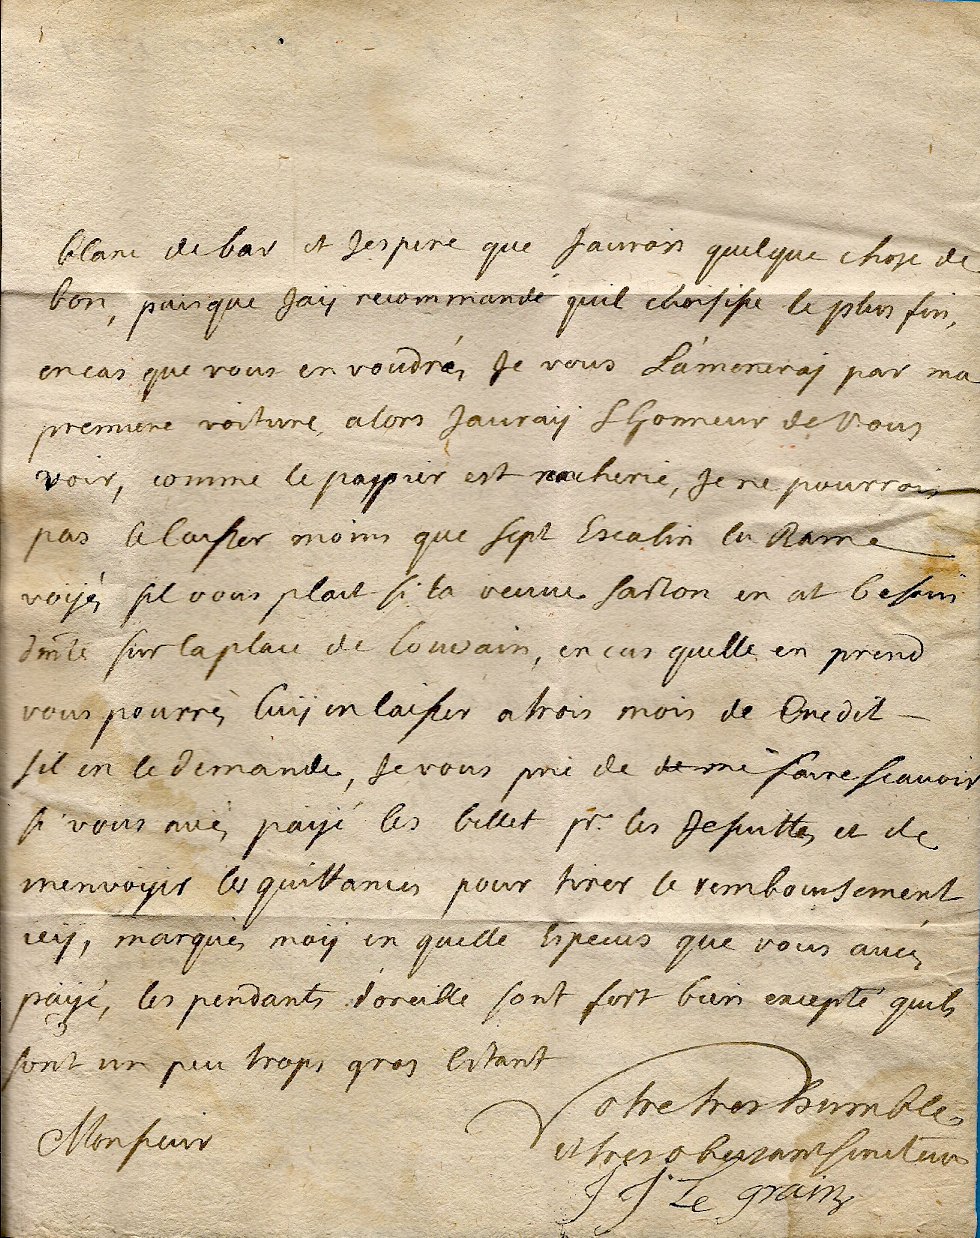 blanc de bar et Jespere que Jaurois quelque chose de
bon, puisque Jaij recommandé quil choisisse le plus fin,
en cas que vous en voudrés Je vous Lámeneraj par ma
premiere voiture, alors Jauraij Lhonneur de vous
voir, comme le papier est racherie, Je ne pourrois
pas le laisser moins que sept Escalin la Rame
voijés sil vous plait si la veuve Sarton en at besoin
sur la place de Louvain, en cas quelle en prend
vous pourrés luij en laisser a trois mois de Credit –
sil en le demande, Je vous prie de de me faire scavoir
si vous avés paijé les billet pr. les Jesuittes et de
menvoijer les quittances pour tirer le remboursement
icij, marqués moij en quelle Especes que vous avés
paijé, les pendants doreille sont fort bien excepté quils
sont un peu trops gros Estant
Monsieur
Votre tres humble
et tres obeissant serviteur
J J Le grain